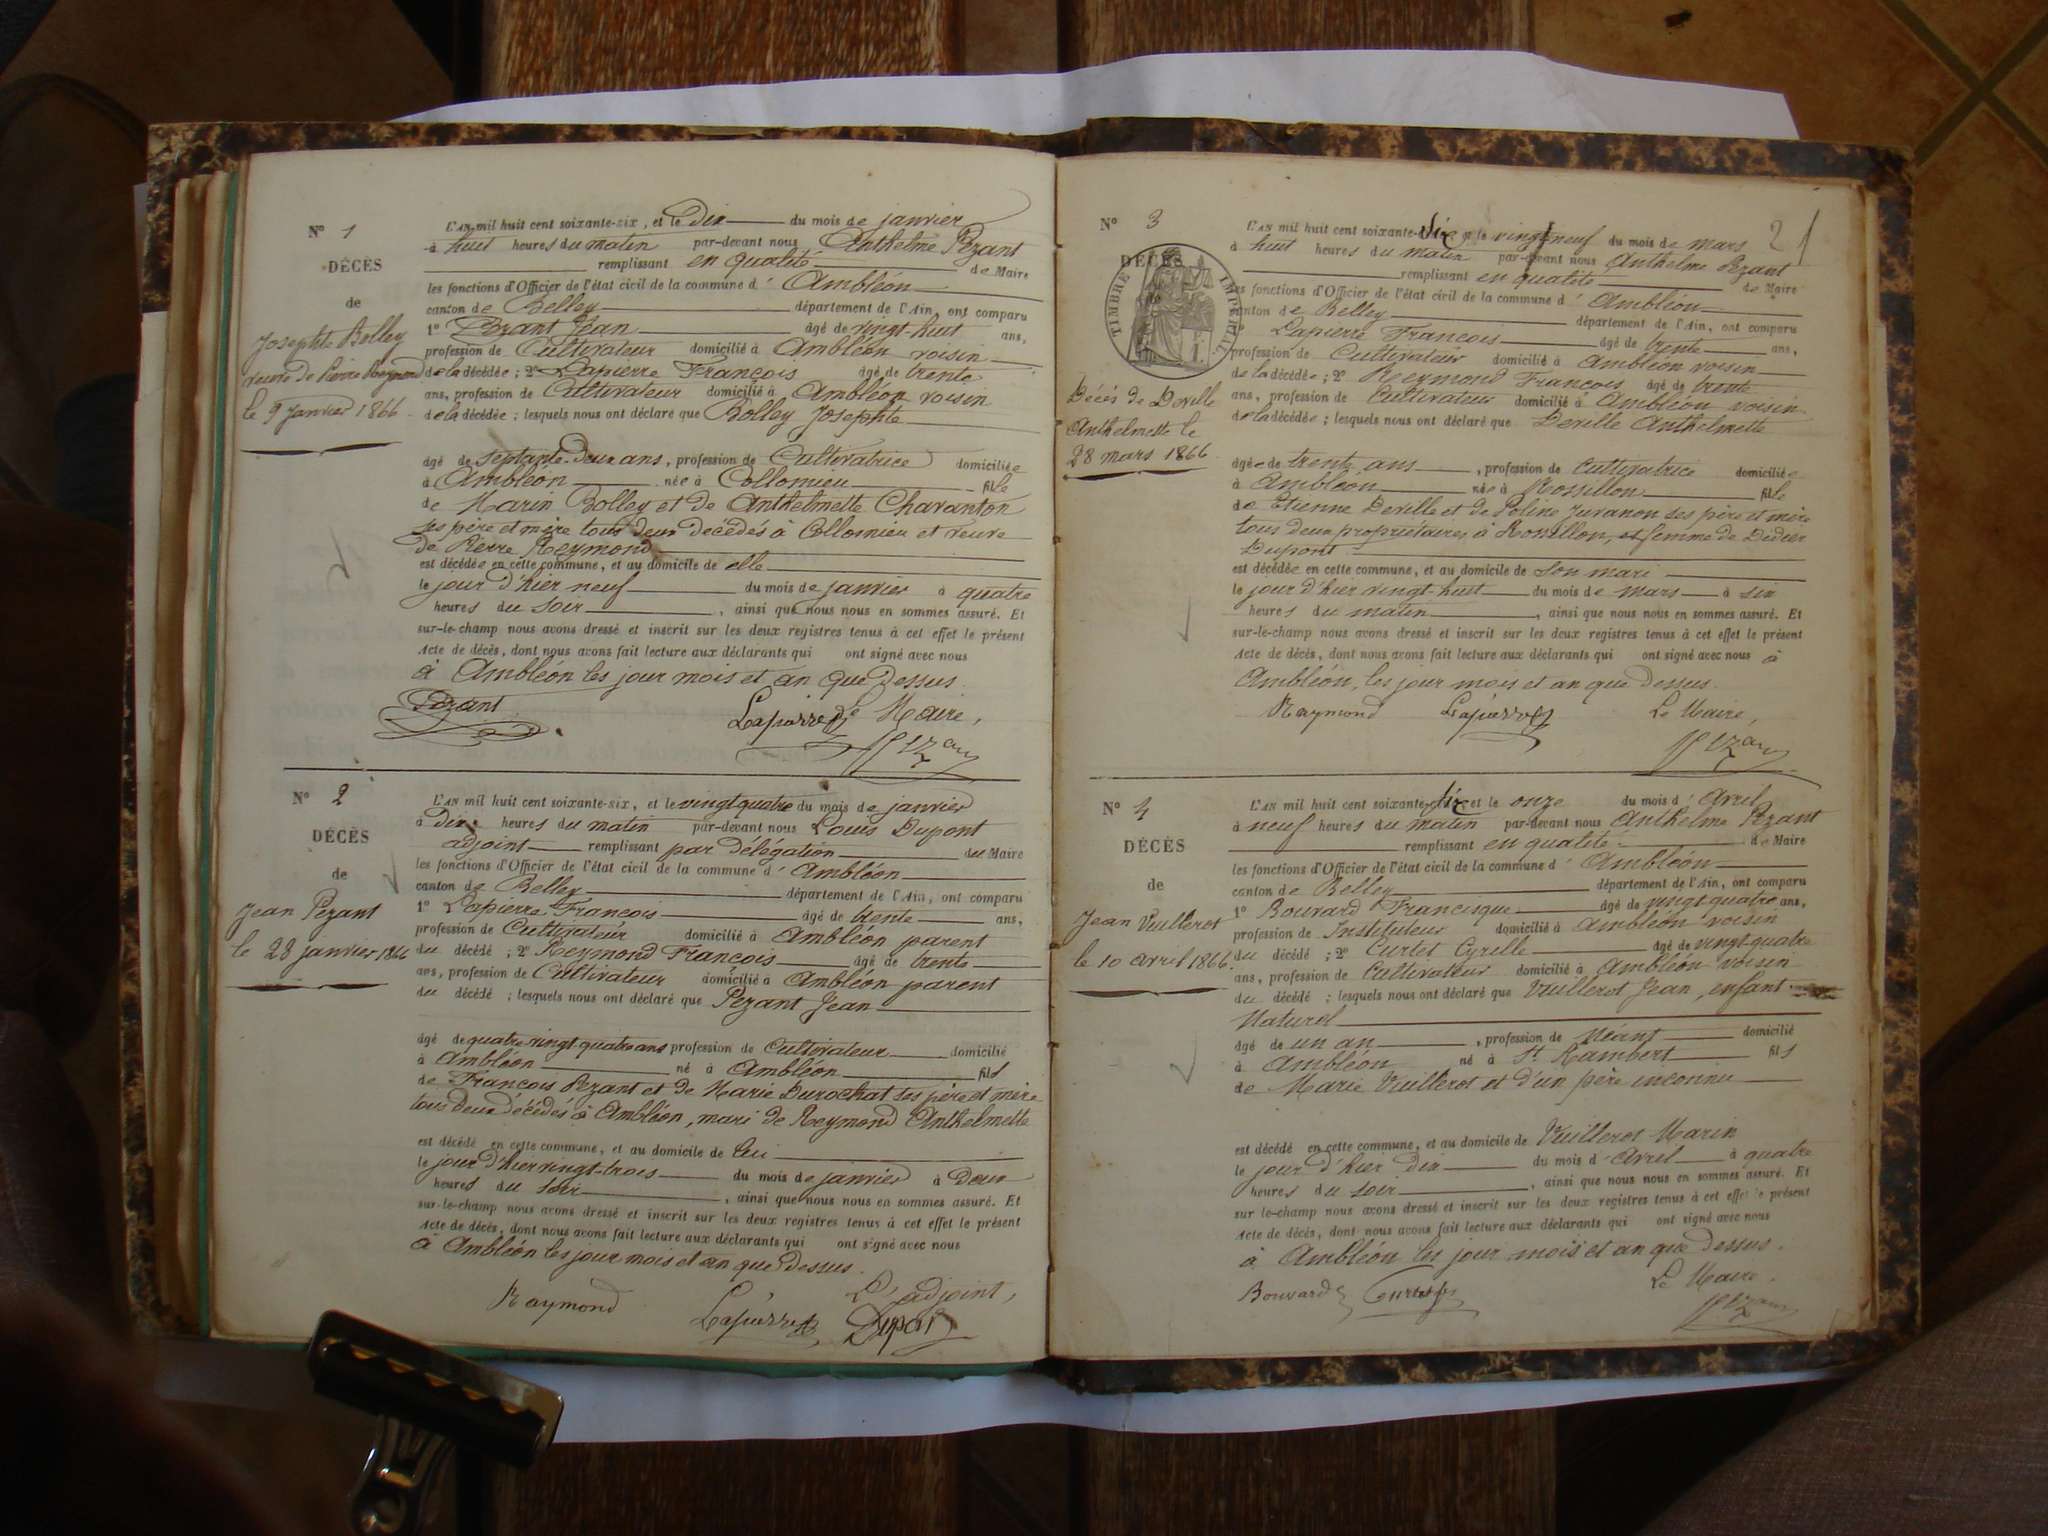 N° 1
DÉCÈS
de
Josephte Bolley
veuve de Pierre Reymond
le 9 janvier 1866
L'AN mil huit cent soixante-six, et le dix du mois de janvier
à huit heures du matin par-devant nous Anthelme Pezant
remplissant en qualité de Maire
les fonctions d'Officier de l'état civil de la commune d'Ambléon
canton de Belley département de l'Ain, ont comparu
1° Pezant Jean âgé de vingt-huit ans,
profession de Cultivateur domicilié à Ambléon voisin
de la décédée ; 2° Lapierre François âgé de trente
ans, profession de Cultivateur domicilié à Ambléon voisin
de la décédée ; lesquels nous ont déclaré que Bolley Josephte
âgé de septante-deux ans, profession de Cultivatrice domiciliée
à Ambléon née à Collomieu fille
de Marin Bolley et de Anthelmette Charanton
ses père et mère tous deux décédés à Collomieu et veuve
de Pierre Reymond
est décédée en cette commune, et au domicile de elle
le jour d'hier neuf du mois de janvier à quatre
heures du soir, ainsi que nous nous en sommes assuré. Et
sur-le-champ nous avons dressé et inscrit sur les deux registres tenus à cet effet le présent
Acte de décès, dont nous avons fait lecture aux déclarants qui ont signé avec nous
à Ambléon les jour mois et an que dessus.
Pezant Lapierre Le Maire,
Pezant
N° 2
DÉCÈS
de
Jean Pezant
le 28 janvier 1866
L'AN mil huit cent soixante-six, et le vingt quatre du mois de janvier
à dix heures du matin par-devant nous Louis Dupont
adjoint remplissant par délégation du Maire
les fonctions d'Officier de l'état civil de la commune d'Ambléon
canton de Belley département de l'Ain, ont comparu
1° Lapierre François âgé de trente ans,
profession de Cultivateur domicilié à Ambléon parent
du décédé ; 2° Reymond François âgé de trente
ans, profession de Cultivateur domicilié à Ambléon parent
du décédé ; lesquels nous ont déclaré que Pezant Jean
âgé de quatre vingt quatre ans profession de Cultivateur domicilié
à Ambléon né à Ambléon fils
de François Pezant et de Marie Durochat ses père et mère
tous deux décédés à Ambléon, mari de Reymond Anthelmette
est décédé en cette commune, et au domicile de lui
le jour d'hier vingt-trois du mois de janvier à deux
heures du soir, ainsi que nous nous en sommes assuré. Et
sur-le-champ nous avons dressé et inscrit sur les deux registres tenus à cet effet le présent
Acte de décès, dont nous avons fait lecture aux déclarants qui ont signé avec nous
à Ambléon les jour mois et an que dessus.
L'adjoint,
Raymond Lapierre Dupont
N° 3
DÉCÈS
TIMBRE IMPÉRIAL
Décès de Deville
Anthelmette le
28 mars 1866
21
L'AN mil huit cent soixante-six et le vingt neuf du mois de mars
à huit heures du matin par-devant nous Anthelme Pezant
remplissant en qualité de Maire
les fonctions d'Officier de l'état civil de la commune d'Ambléon
canton de Belley département de l'Ain, ont comparu
1° Lapierre François âgé de trente ans,
profession de Cultivateur domicilié à Ambléon voisin
de la décédée ; 2° Reymond François âgé de trente
ans, profession de Cultivateur domicilié à Ambléon voisin
de la décédée ; lesquels nous ont déclaré que Deville Anthelmette
âgée de trente ans, profession de Cultivatrice domiciliée
à Ambléon née à Rossillon fille
de Etienne Deville et de Poline Juvanon ses père et mère
tous deux propriétaires à Rossillon, et femme de Didier
Dupont
est décédée en cette commune, et au domicile de son mari
le jour d'hier vingt-huit du mois de mars à six
heures du matin, ainsi que nous nous en sommes assuré. Et
sur-le-champ nous avons dressé et inscrit sur les deux registres tenus à cet effet le présent
Acte de décès, dont nous avons fait lecture aux déclarants qui ont signé avec nous à
Ambléon, les jour mois et an que dessus.
Raymond Lapierre Le Maire,
Pezant
N° 4
DÉCÈS
de
Jean Vuillerot
le 10 avril 1866.
L'AN mil huit cent soixante-six et le onze du mois d'Avril
à neuf heures du matin par-devant nous Anthelme Pezant
remplissant en qualité de Maire
les fonctions d'Officier de l'état civil de la commune d'Ambléon
canton de Belley département de l'Ain, ont comparu
1° Bouvard Francisque âgé de vingt quatre ans,
profession de Instituteur domicilié à Ambléon voisin
du décédé ; 2° Curtet Cyrille âgé de vingt-quatre
ans, profession de Cultivateur domicilié à Ambléon voisin
du décédé ; lesquels nous ont déclaré que Vuillerot Jean, enfant
Naturel
âgé de un an, profession de Néant domicilié
à Ambléon né à St Rambert fils
de Marie Vuillerot et d'un père inconnu
est décédé en cette commune, et au domicile de Vuillerot Marin
le jour d'hier dix du mois d'Avril à quatre
heures du soir, ainsi que nous nous en sommes assuré. Et
sur le-champ nous avons dressé et inscrit sur les deux registres tenus à cet effet le présent
Acte de décès, dont nous avons fait lecture aux déclarants qui ont signé avec nous
à Ambléon les jour mois et an que dessus.
Bouvard Curtet Le Maire.
Pezant